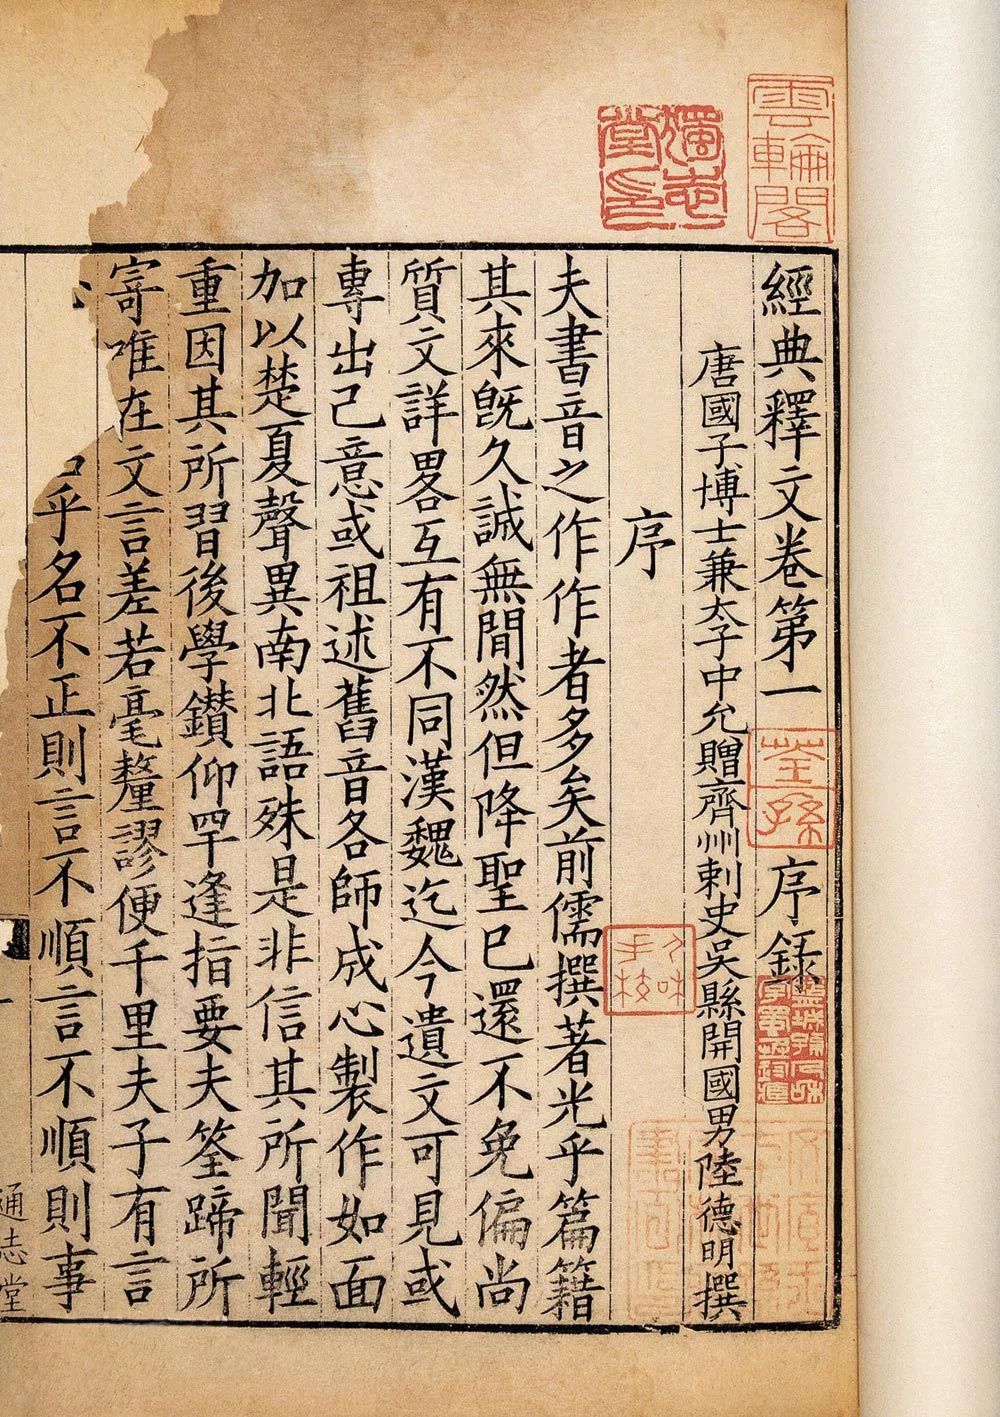 雲輪閣
獨志堂印
經典釋文卷第一
荃孫
序錄
唐國子博士兼太子中允贈齊州刺史吳縣開國男陸德明撰
序
人和手校
夫書音之作作者多矣前儒撰著光乎篇籍
其來旣久誠無閒然但降聖已還不免偏尚
質文詳畧互有不同漢魏迄今遺文可見或
專出己意或祖述舊音各師成心製作如面
加以楚夏聲異南北語殊是非信其所聞輕
重因其所習後學鑽仰罕逢指要夫筌蹄所
寄唯在文言差若毫釐謬便千里夫子有言
乎名不正則言不順言不順則事
通志堂